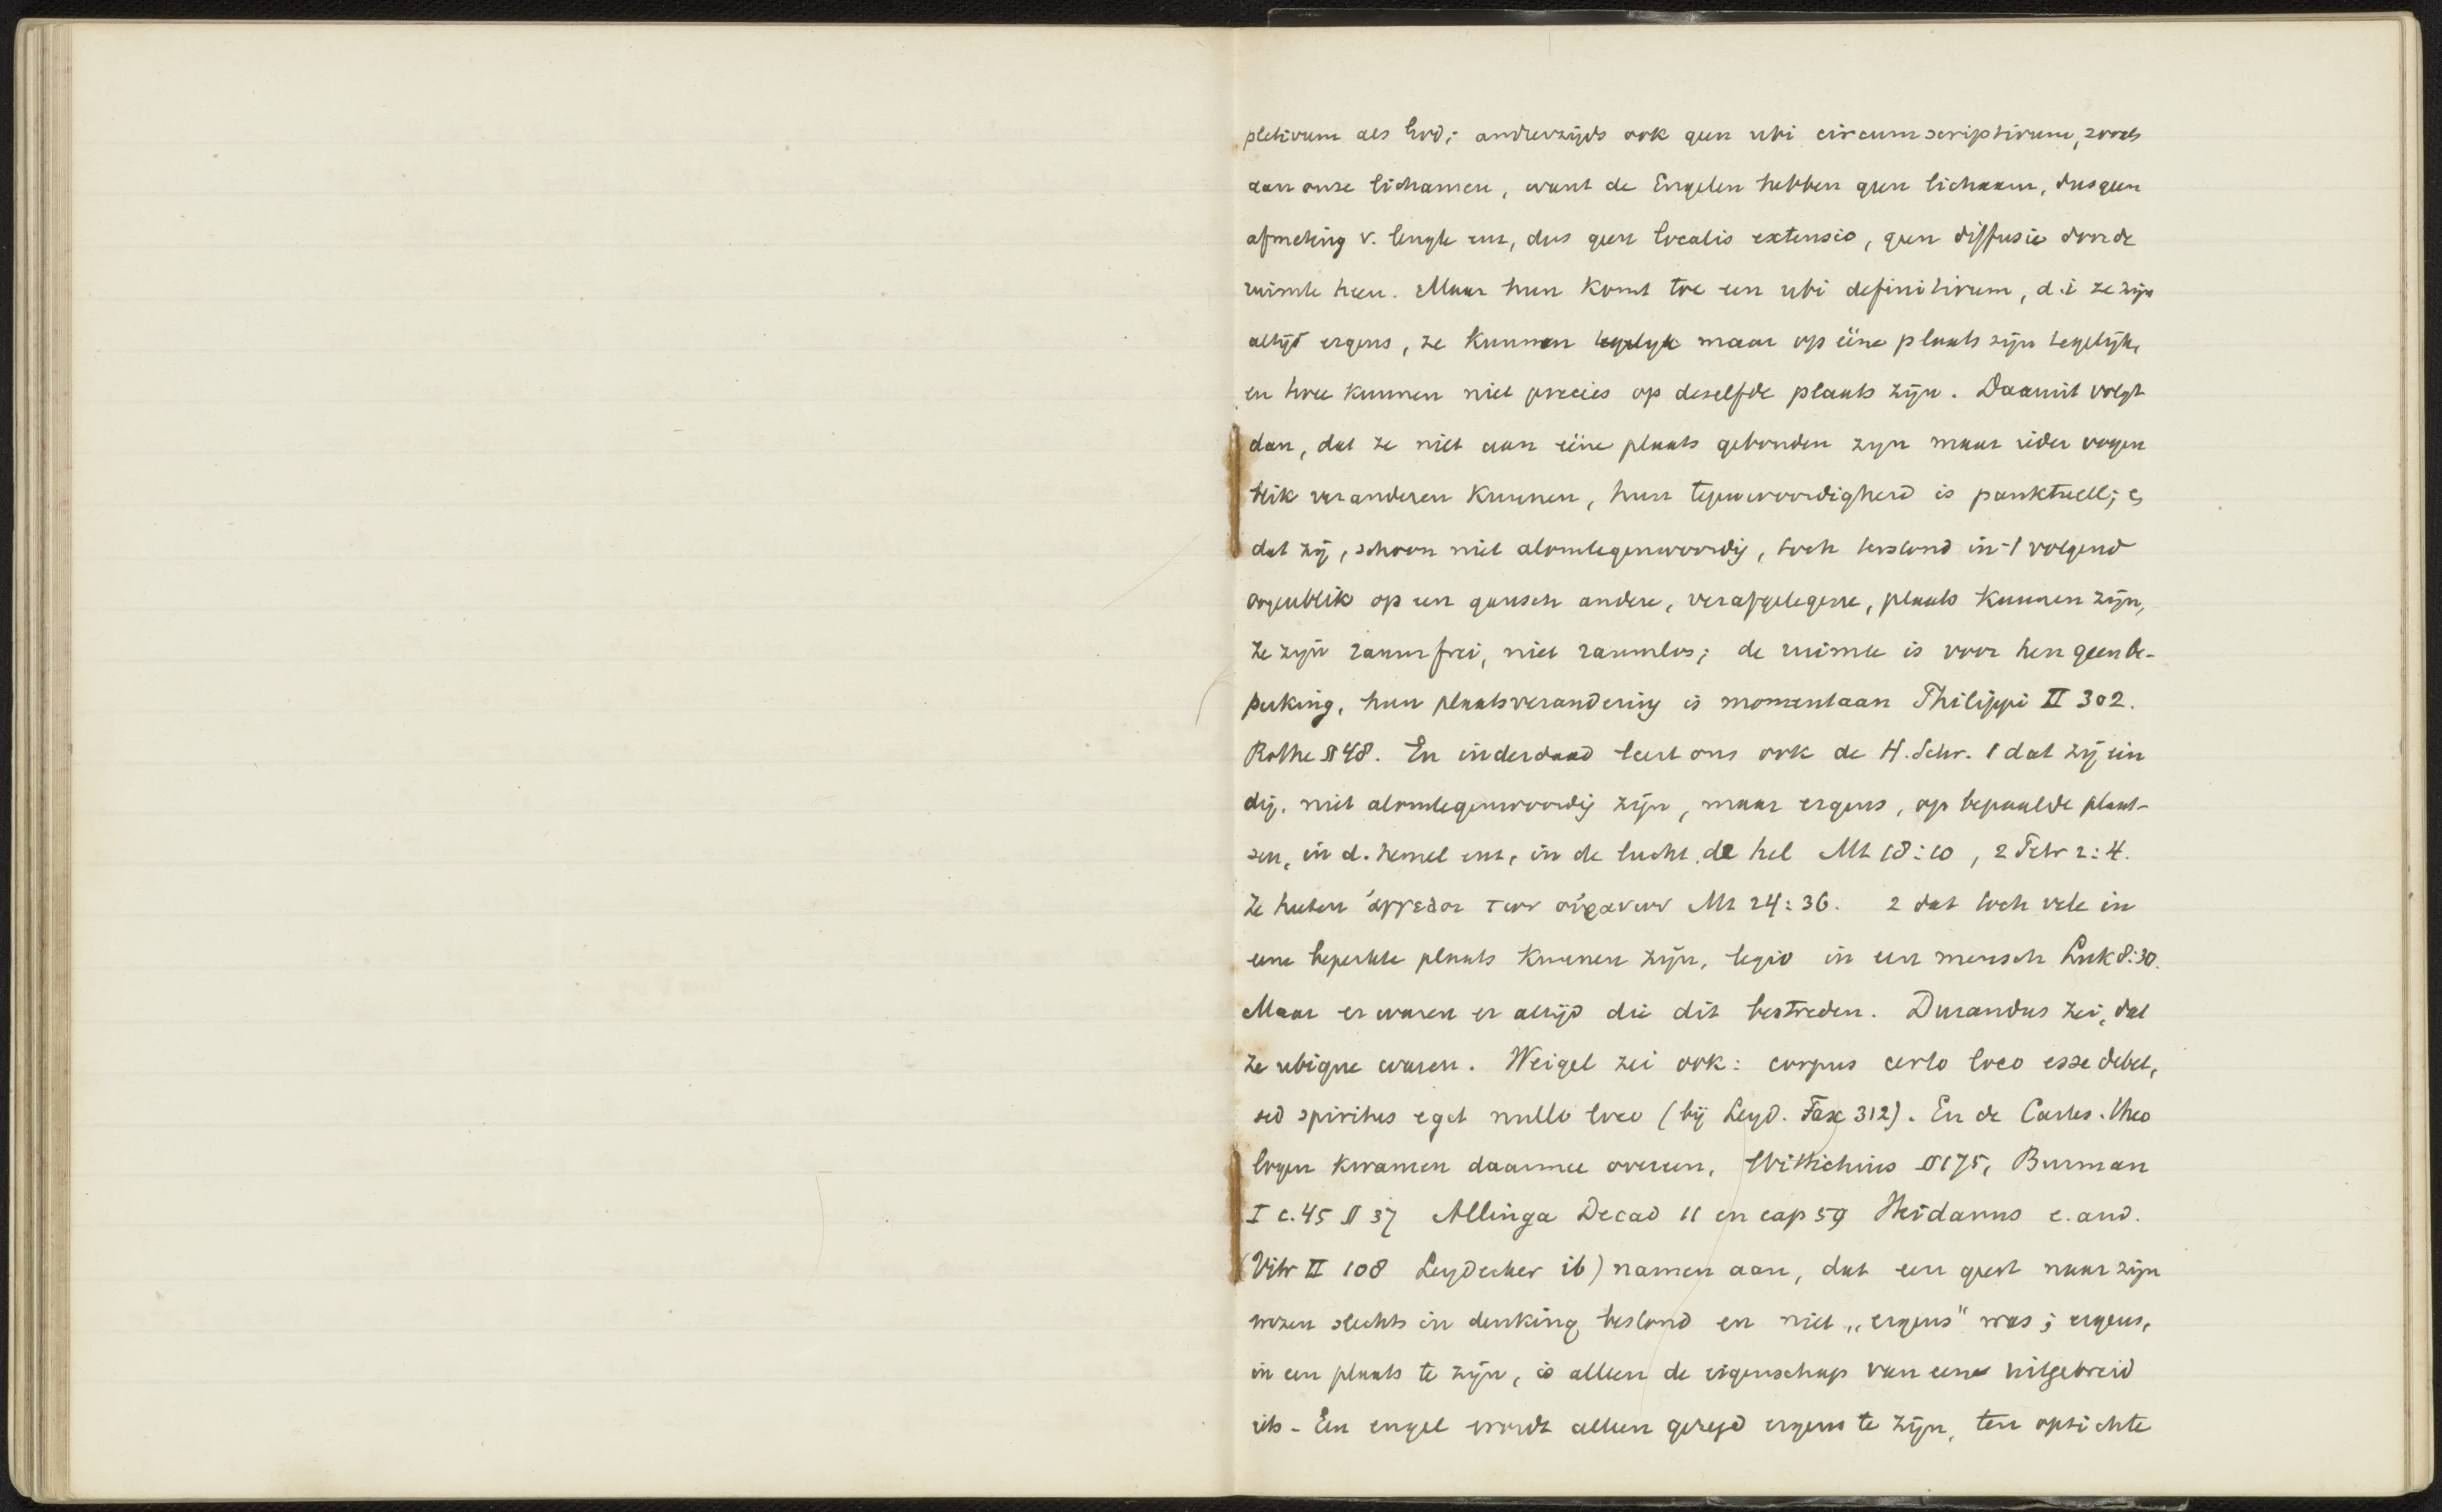 pletivum als God; anderzijds ook geen ubi circumscriptivum, zooals
aan onze lichamen, want de Engelen hebben geen lichaam, dus geen
afmeting v. lengte enz, dus geen localis extensio, geen diffusie door de
ruimte heen. Maar hun komt toe een ubi definitivum, d.i ze zijn
altijd ergens, ze kunnen maar op ééne plaats zijn tegelijk,
en twee kunnen niet precies op deselfde plaats zijn. Daaruit volgt
dan, dat ze niet aan ééne plaats gebonden zyn maar ieder oogen
blik veranderen kunnen, hun tegenwoordigheid is punktueel; en
dat zij, schoon niet alomtegenwoordig, toch terstond in 't volgend
oogenblik op een gansch andere, verafgelegene, plaats kunnen zijn,
ze zyn raumfrei, niet raumlos; de ruimte is voor hen geen be-
perking, hun plaatsverandering is momentaan Philippi II 302.
Rothe § 48. En inderdaad leert ons ook de H. Schr. 1 dat zij ein
dig, niet alomtegenwoordig zijn, maar ergens, op bepaalde plaat-
sen, in d. hemel enz, in de lucht, de hel Mt 18:10, 2 Petr 2:4.
Ze heeten ἀγγελοι των οὐρανων Mt 24:36. 2 dat toch vele in
eene beperkte plaats kunnen zijn, legio in een mensch Luk 8:30.
Maar er waren er altijd die dit bestreden. Durandus zei, dat
ze ubique waren. Weigel zei ook: corpus certo loco esse debet,
sed spiritus eget nullo loco (bij Leyd. Fax 312). En de Cartes. theo
logen kwamen daarmee overeen, Wittichius § 175, Burman
I c. 45 § 37 Allinga Decad 11 en cap 59 Heidanus e. and.
(Vitr II 108 Leydecker ib) namen aan, dat een geest naar zijn
wezen slechts in denking bestond en niet „ergens" was; ergens,
in een plaats te zijn, is alleen de eigenschap van eene uitgebreid
iets - Een engel wordt alleen gezegd ergens te zijn, ten opzichte